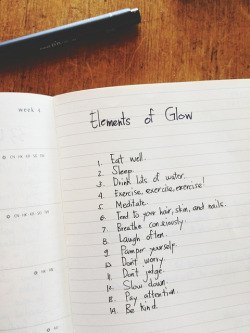 week 2
Elements of Glow
1. Eat well.
2. Sleep.
3. Drink lots of water.
4. Exercise, exercise, exercise!
5. Meditate.
6. Tend to your hair, skin, and nails.
7. Breathe consciously.
8. Laugh often.
9. Pamper yourself.
10. Don't worry.
11. Don't judge.
12. Slow down.
13. Pay attention.
14. Be kind.